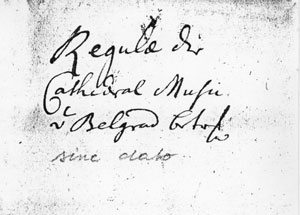 Regulæ der
Cathedral Music
Belgrad
sine dato